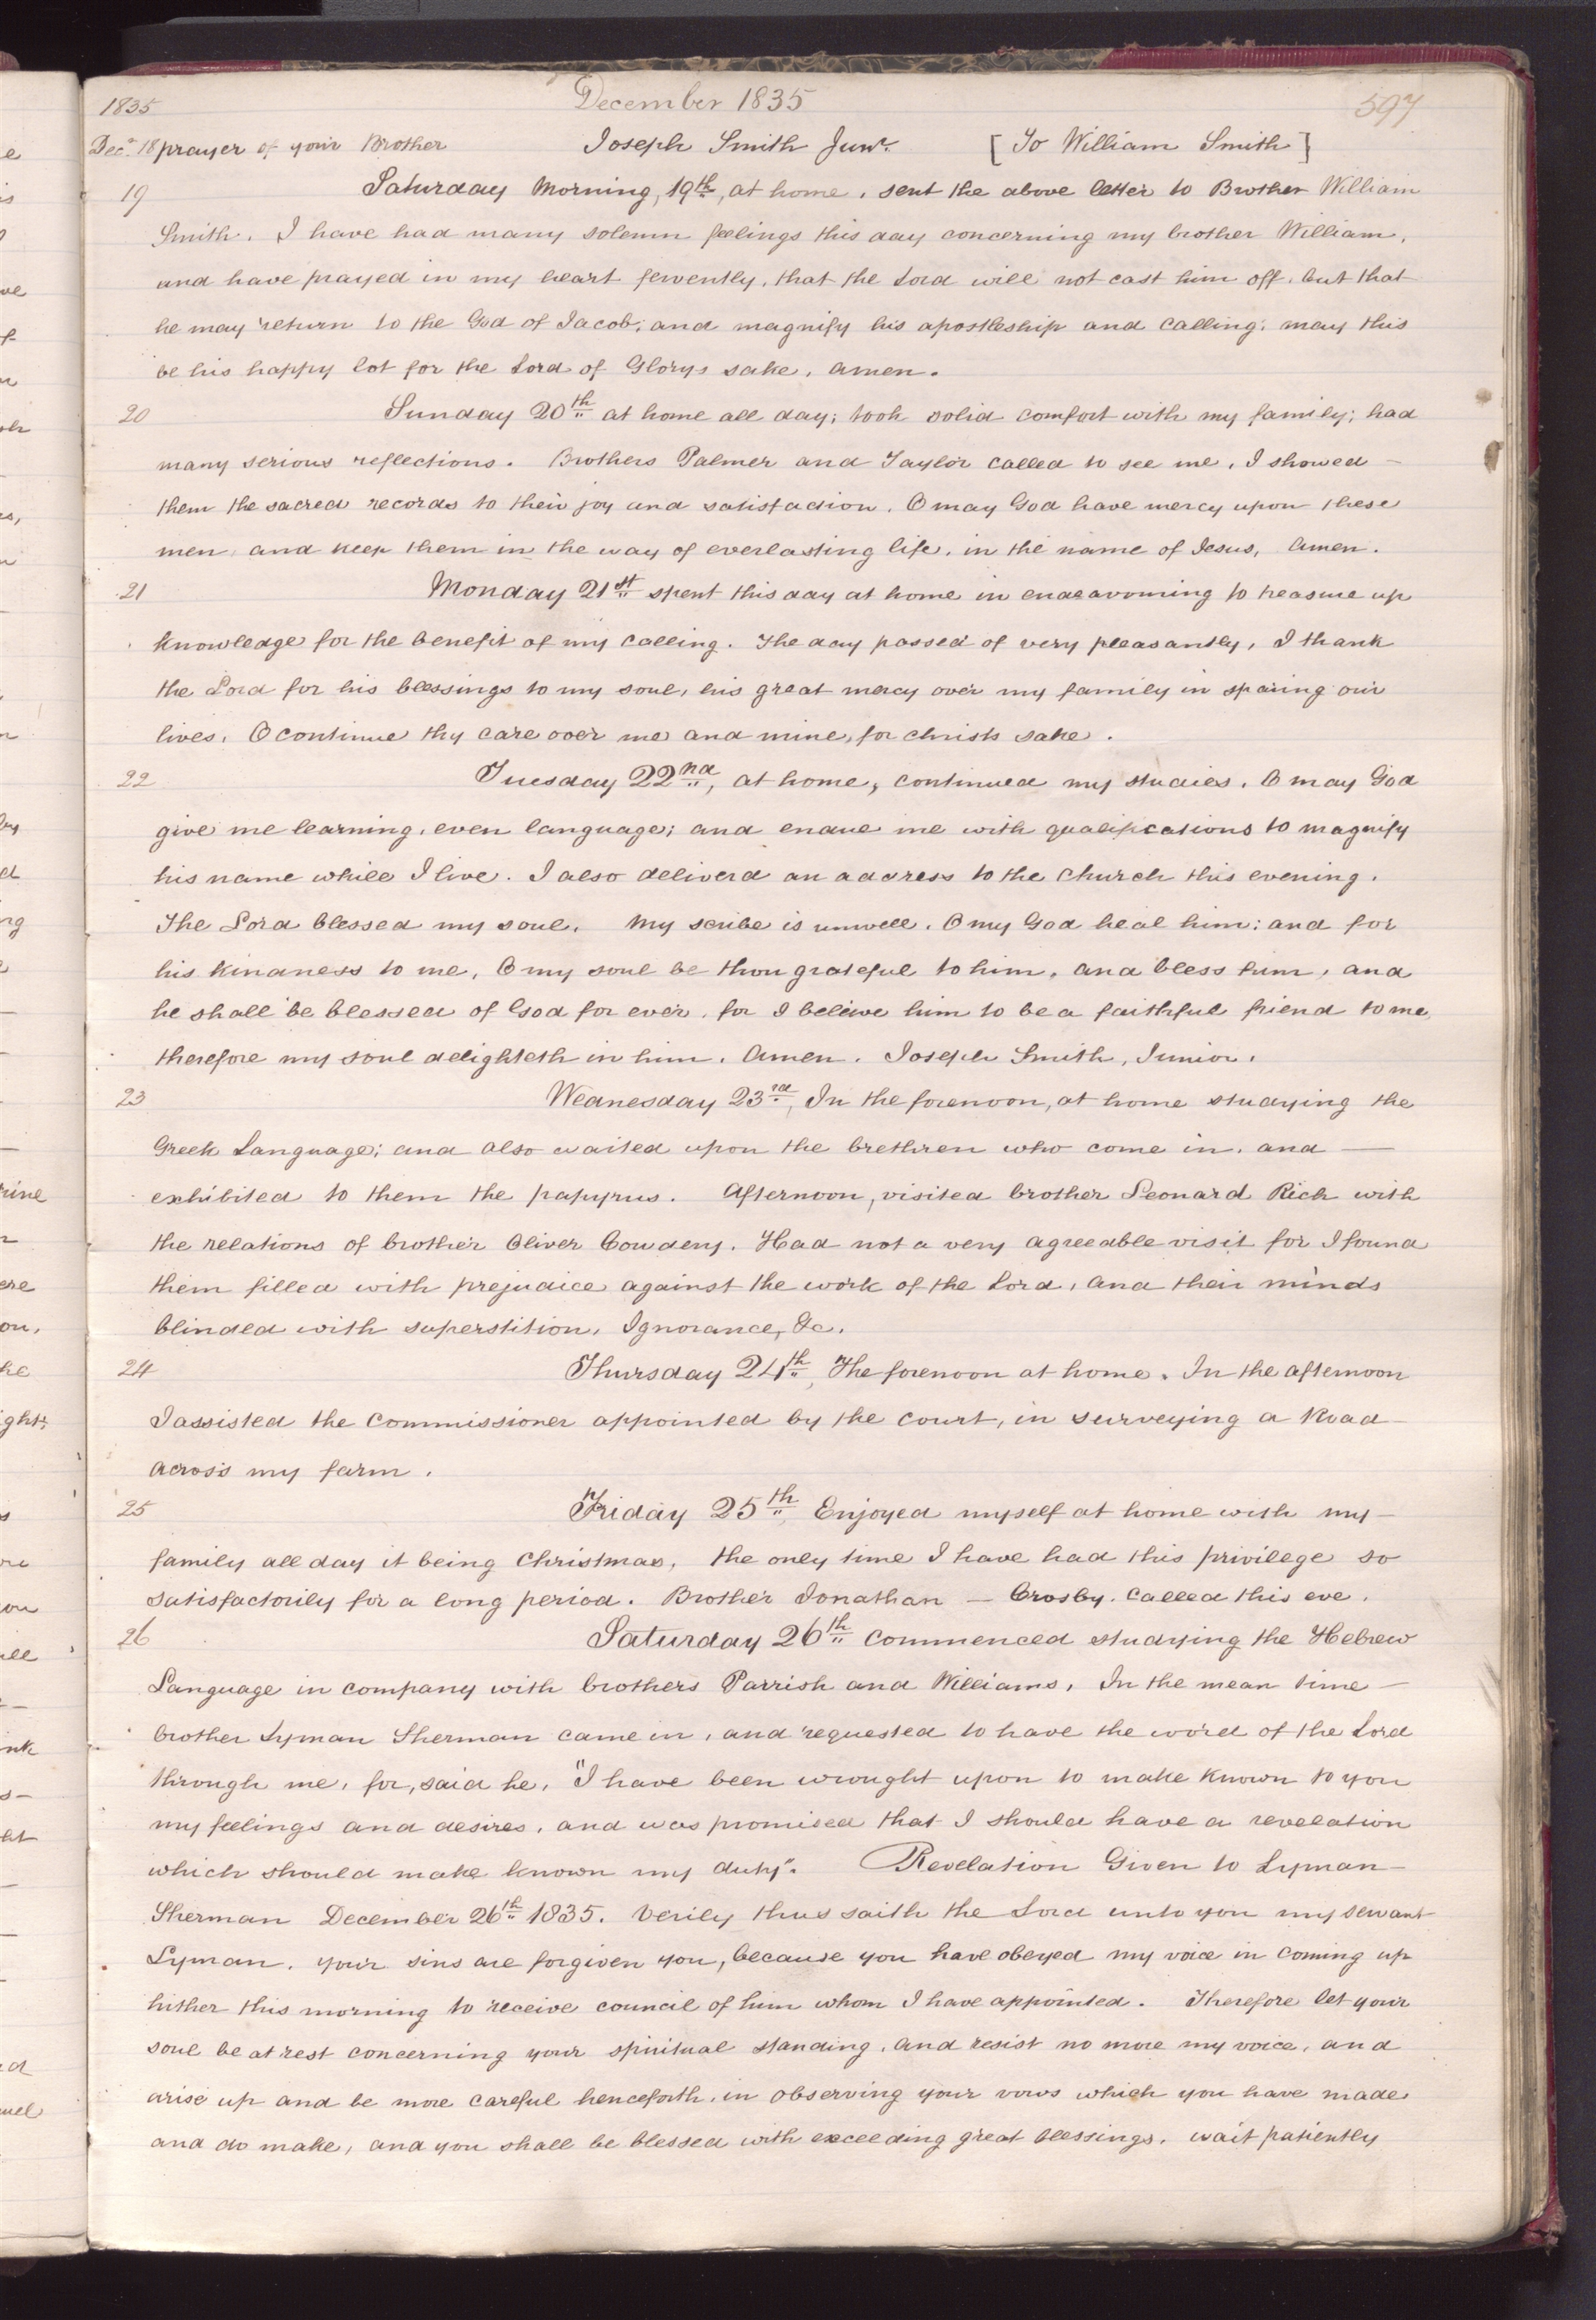 1835 December 1835 597
Decr. 18 prayer of your Brother Joseph Smith Junr. [To William Smith]
19 Saturday Morning, 19th, at home. sent the above letter to Brother William
Smith. I have had many solemn feelings this day concerning my brother William,
and have prayed in my heart fervently, that the Lord will not cast him off, but that
he may return to the God of Jacob, and magnify his apostleship and calling; may this
be his happy lot for the Lord of Glorys sake, amen.
20 Sunday 20th at home all day; took solid comfort with my family; had
many serious reflections. Brothers Palmer and Taylor called to see me, I showed
them the sacred records to their joy and satisfaction. O may God have mercy upon these
men, and keep them in the way of everlasting life, in the name of Jesus, Amen.
21 Monday 21st spent this day at home in endeavouring to treasure up
knowledge for the benefit of my calling. The day passed of very pleasantly, I thank
the Lord for his blessings to my soul, his great mercy over my family in sparing our
lives. O continue thy care over me and mine, for christs sake.
22 Tuesday 22nd, at home, continued my studies. O may God
give me learning, even language; and endue me with qualifications to magnify
his name while I live. I also deliverd an address to the church this evening.
The Lord blessed my soul. My scribe is unwell. O my God heal him; and for
his kindness to me, O my soul be thou grateful to him, and bless him, and
he shall be blessed of God for ever, for I beleive him to be a faithful friend to me,
therefore my soul delighteth in him. Amen. Joseph Smith, Junior.
23 Wednesday 23rd, In the forenoon, at home studying the
Greek Language; and also waited upon the brethren who come in, and —
exhibited to them the papyrus. Afternoon, visited brother Leonard Rich with
the relations of brother Oliver Cowdery. Had not a very agreeable visit for I found
them filled with prejudice against the work of the Lord, and their minds
blinded with superstition, Ignorance, &c.
24 Thursday 24th, The forenoon at home. In the afternoon
I assisted the commissioner appointed by the court, in surveying a Road —
across my farm.
25 Friday 25th, Enjoyed myself at home with my —
family all day it being Christmas, the only time I have had this privilege so
satisfactorily for a long period. Brother Jonathan — Crosby called this eve.
26 Saturday 26th commenced studying the Hebrew
Language in company with brothers Parrish and Williams, In the mean time —
brother Lyman Sherman came in, and requested to have the word of the Lord
through me, for, said he, "I have been wrought upon to make known to you
my feelings and desires, and was promised that I should have a revelation
which should make known my duty". Revelation Given to Lyman —
Sherman December 26th 1835. Verily thus saith the Lord unto you my servant
Lyman, your sins are forgiven you, because you have obeyed my voice in coming up
hither this morning to receive council of him whom I have appointed. Therefore let your
soul be at rest concerning your spiritual standing, and resist no more my voice, and
arise up and be more careful henceforth, in observing your vows which you have made
and do make, and you shall be blessed with exceeding great blessings. wait patiently